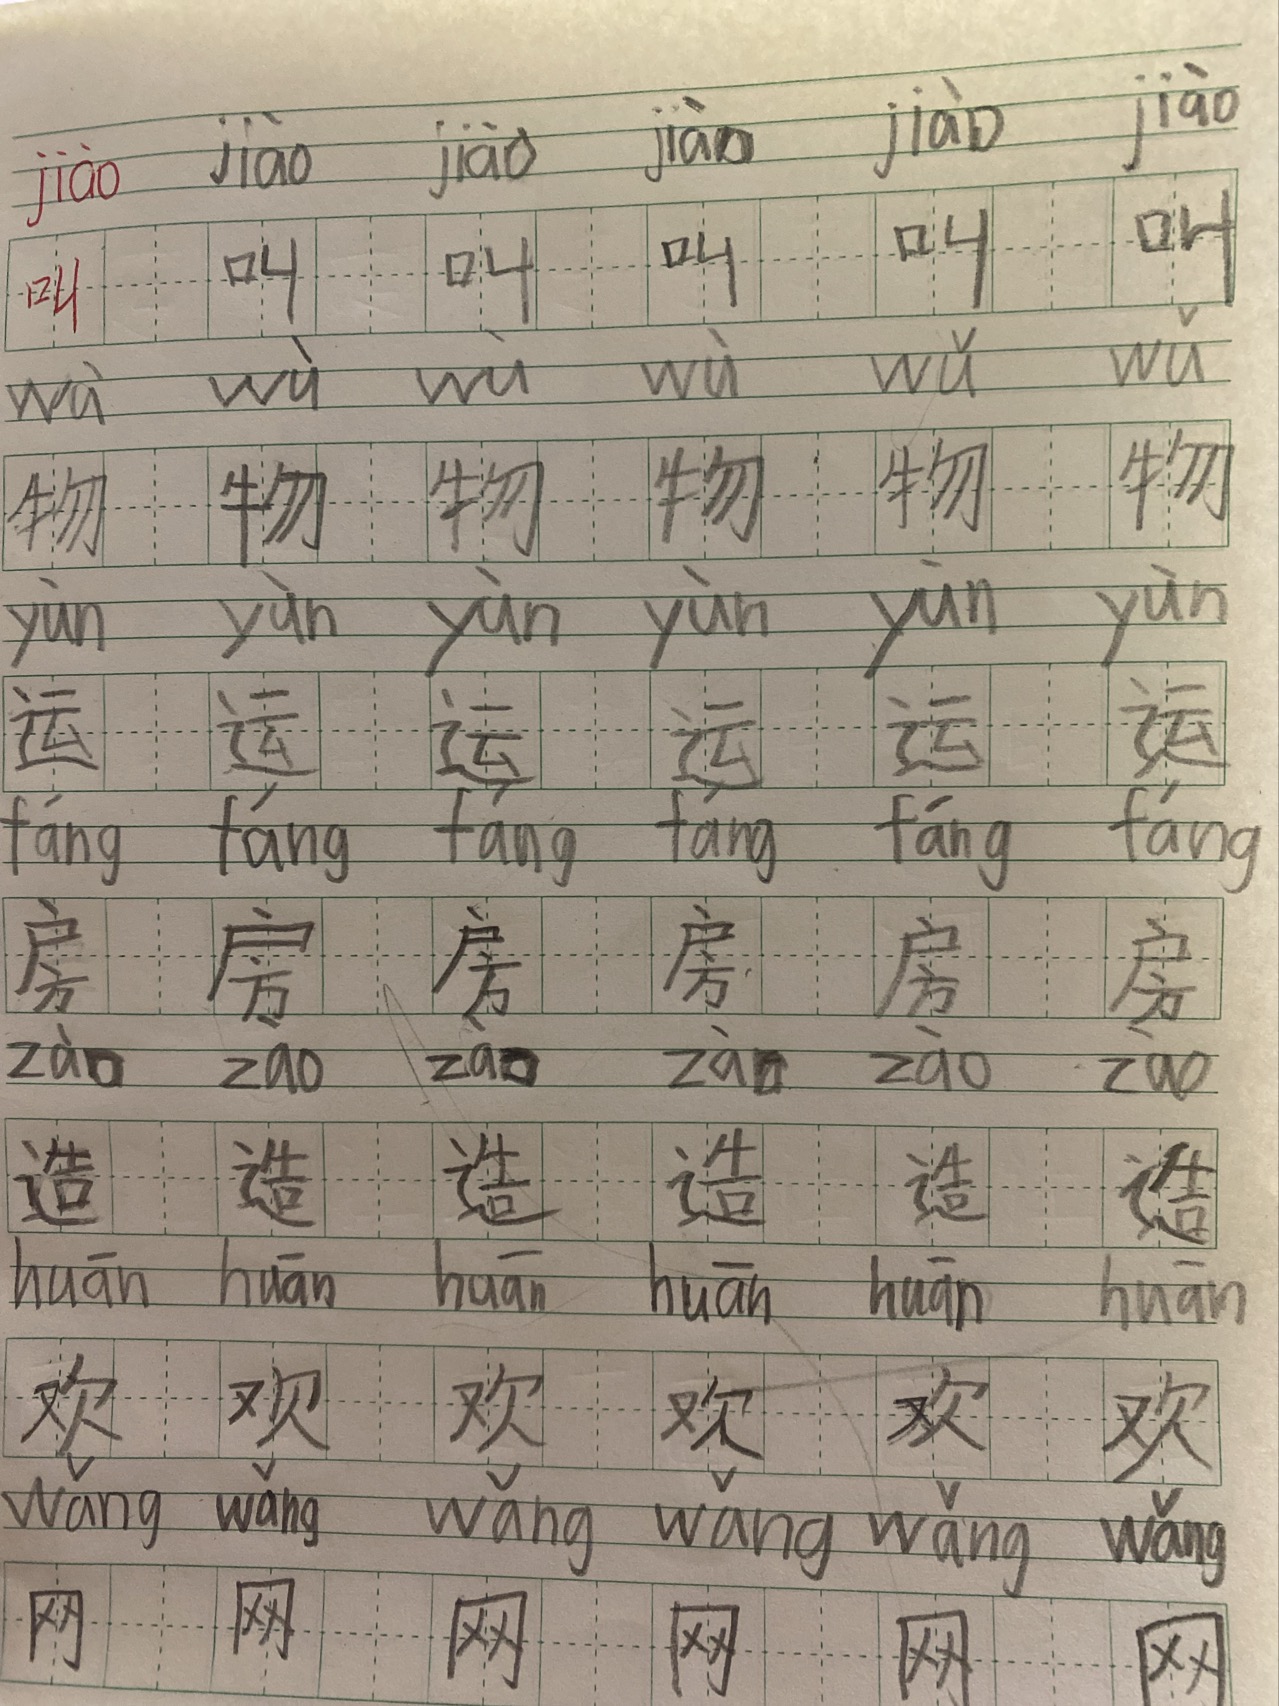 jiào jiào jiào jiào jiào jiào
叫 叫 叫 叫 叫 叫
wù wù wù wù wǔ wǔ
物 物 物 物 物 物
yùn yùn yùn yùn yùn yùn
运 运 运 运 运 运
fáng fáng fáng fáng fáng fáng
房 房 房 房 房 房
zào zào zào zào zào zào
造 造 造 造 造 造
huān huān huān huān huān huān
欢 欢 欢 欢 欢 欢
wǎng wǎng wǎng wǎng wǎng wǎng
网 网 网 网 网 网